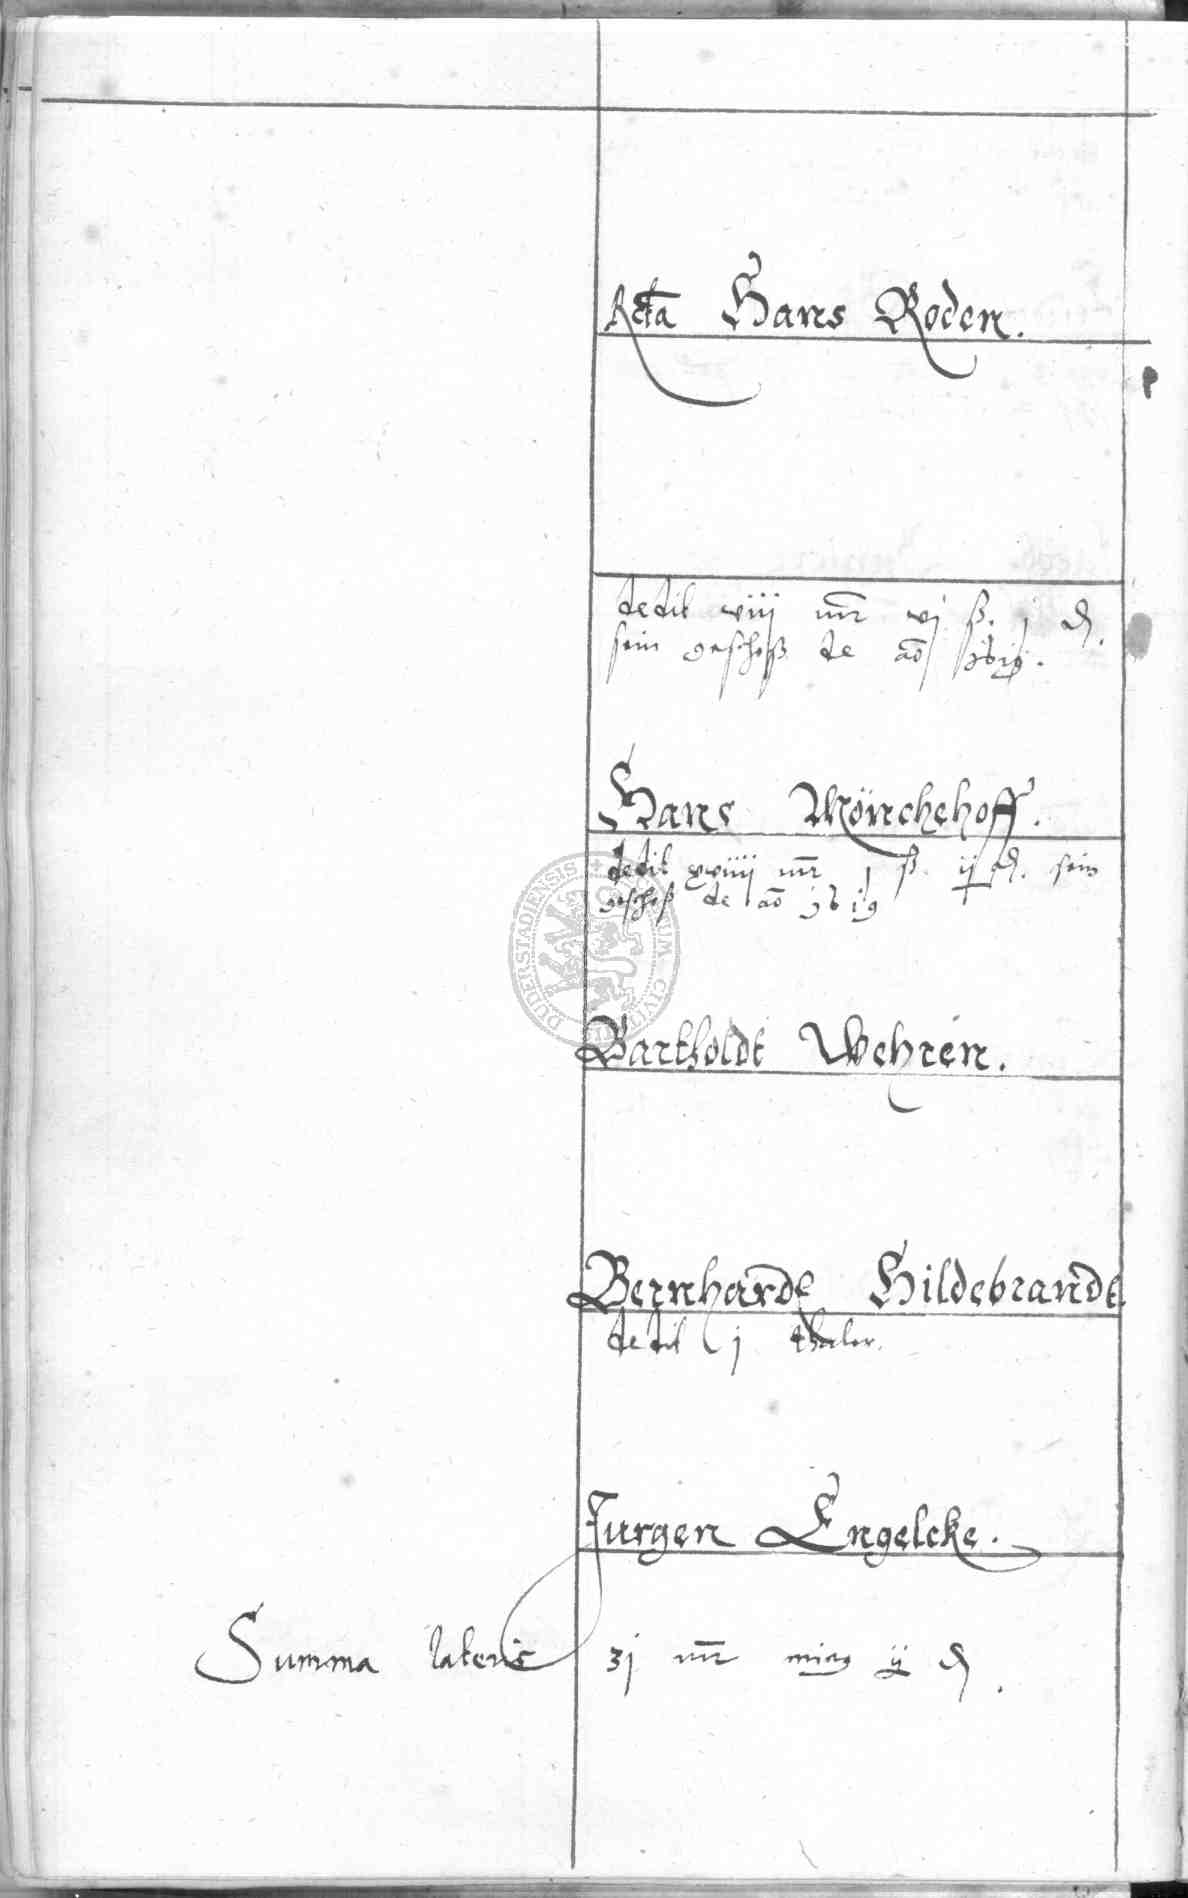 Relicta Hans Roden.
dedit viij mr vj ß. j d.
sein geschoß de ao 1619.
Hans Mönchehoff.
dedit xviiij mr j ß. ij d. sein
geschoß de ao 1619
DUDERSTADIENSIS CIVITATIS
Bartholdt Wehren.
Bernhardt Hildebrandt
dedit j thaler.
Jurgen Engelcke.
Summa lateris 3j mr ming ij d.